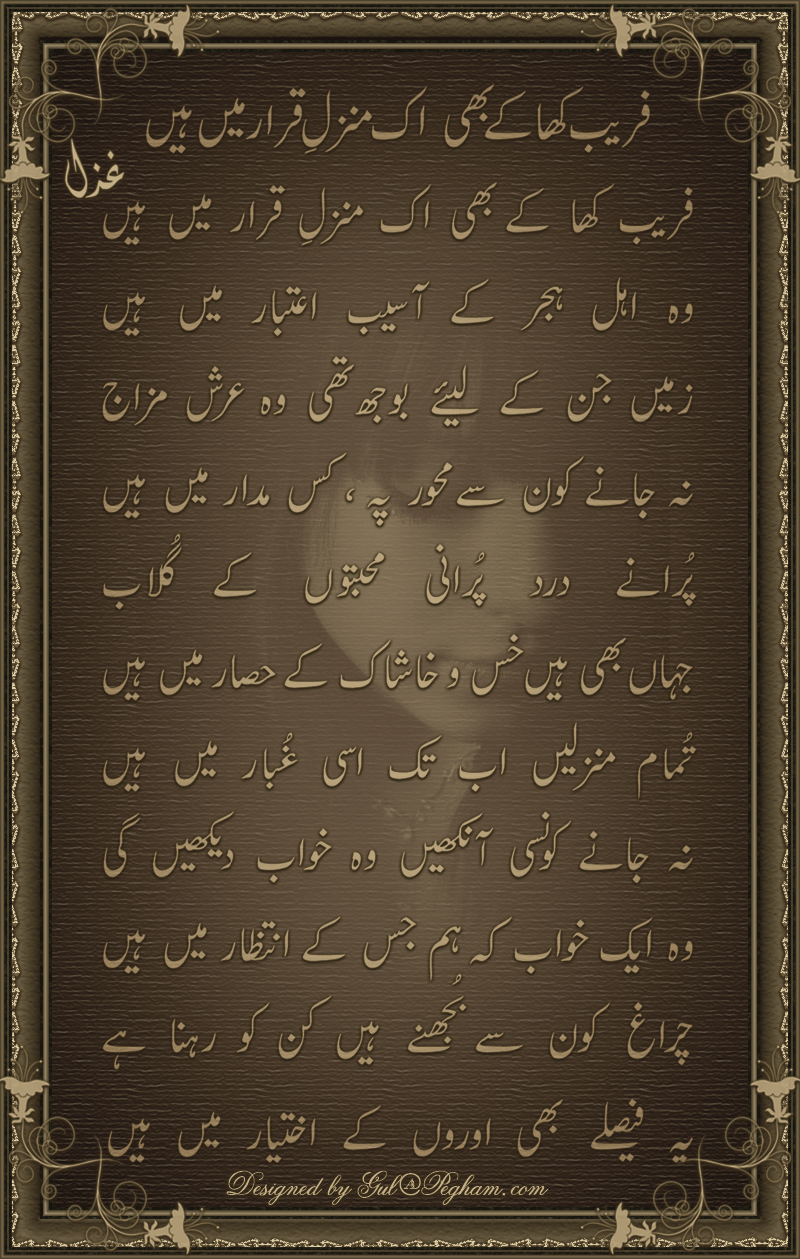 فریب کھا کے بھی اک منزلِ قرار میں ہیں
غزل
فریب کھا کے بھی اک منزلِ قرار میں ہیں
وہ اہل ہجر کے آسیب اعتبار میں ہیں
زمیں جن کے لیئے بوجھ تھی وہ عرش مزاج
نہ جانے کون سے محور پہ ، کس مدار میں ہیں
پُرانے درد پُرانی محبتوں کے گُلاب
جہاں بھی ہیں خس و خاشاک کے حصار میں ہیں
تُمام منزلیں اب تک اسی غُبار میں ہیں
نہ جانے کونسی آنکھیں وہ خواب دیکھیں گی
وہ ایک خواب کہ ہم جس کے انتظار میں ہیں
چراغ کون سے بُجھنے ہیں کن کو رہنا ہے
یہ فیصلے بھی اوروں کے اختیار میں ہیں
Designed by Gul@Pegham.com